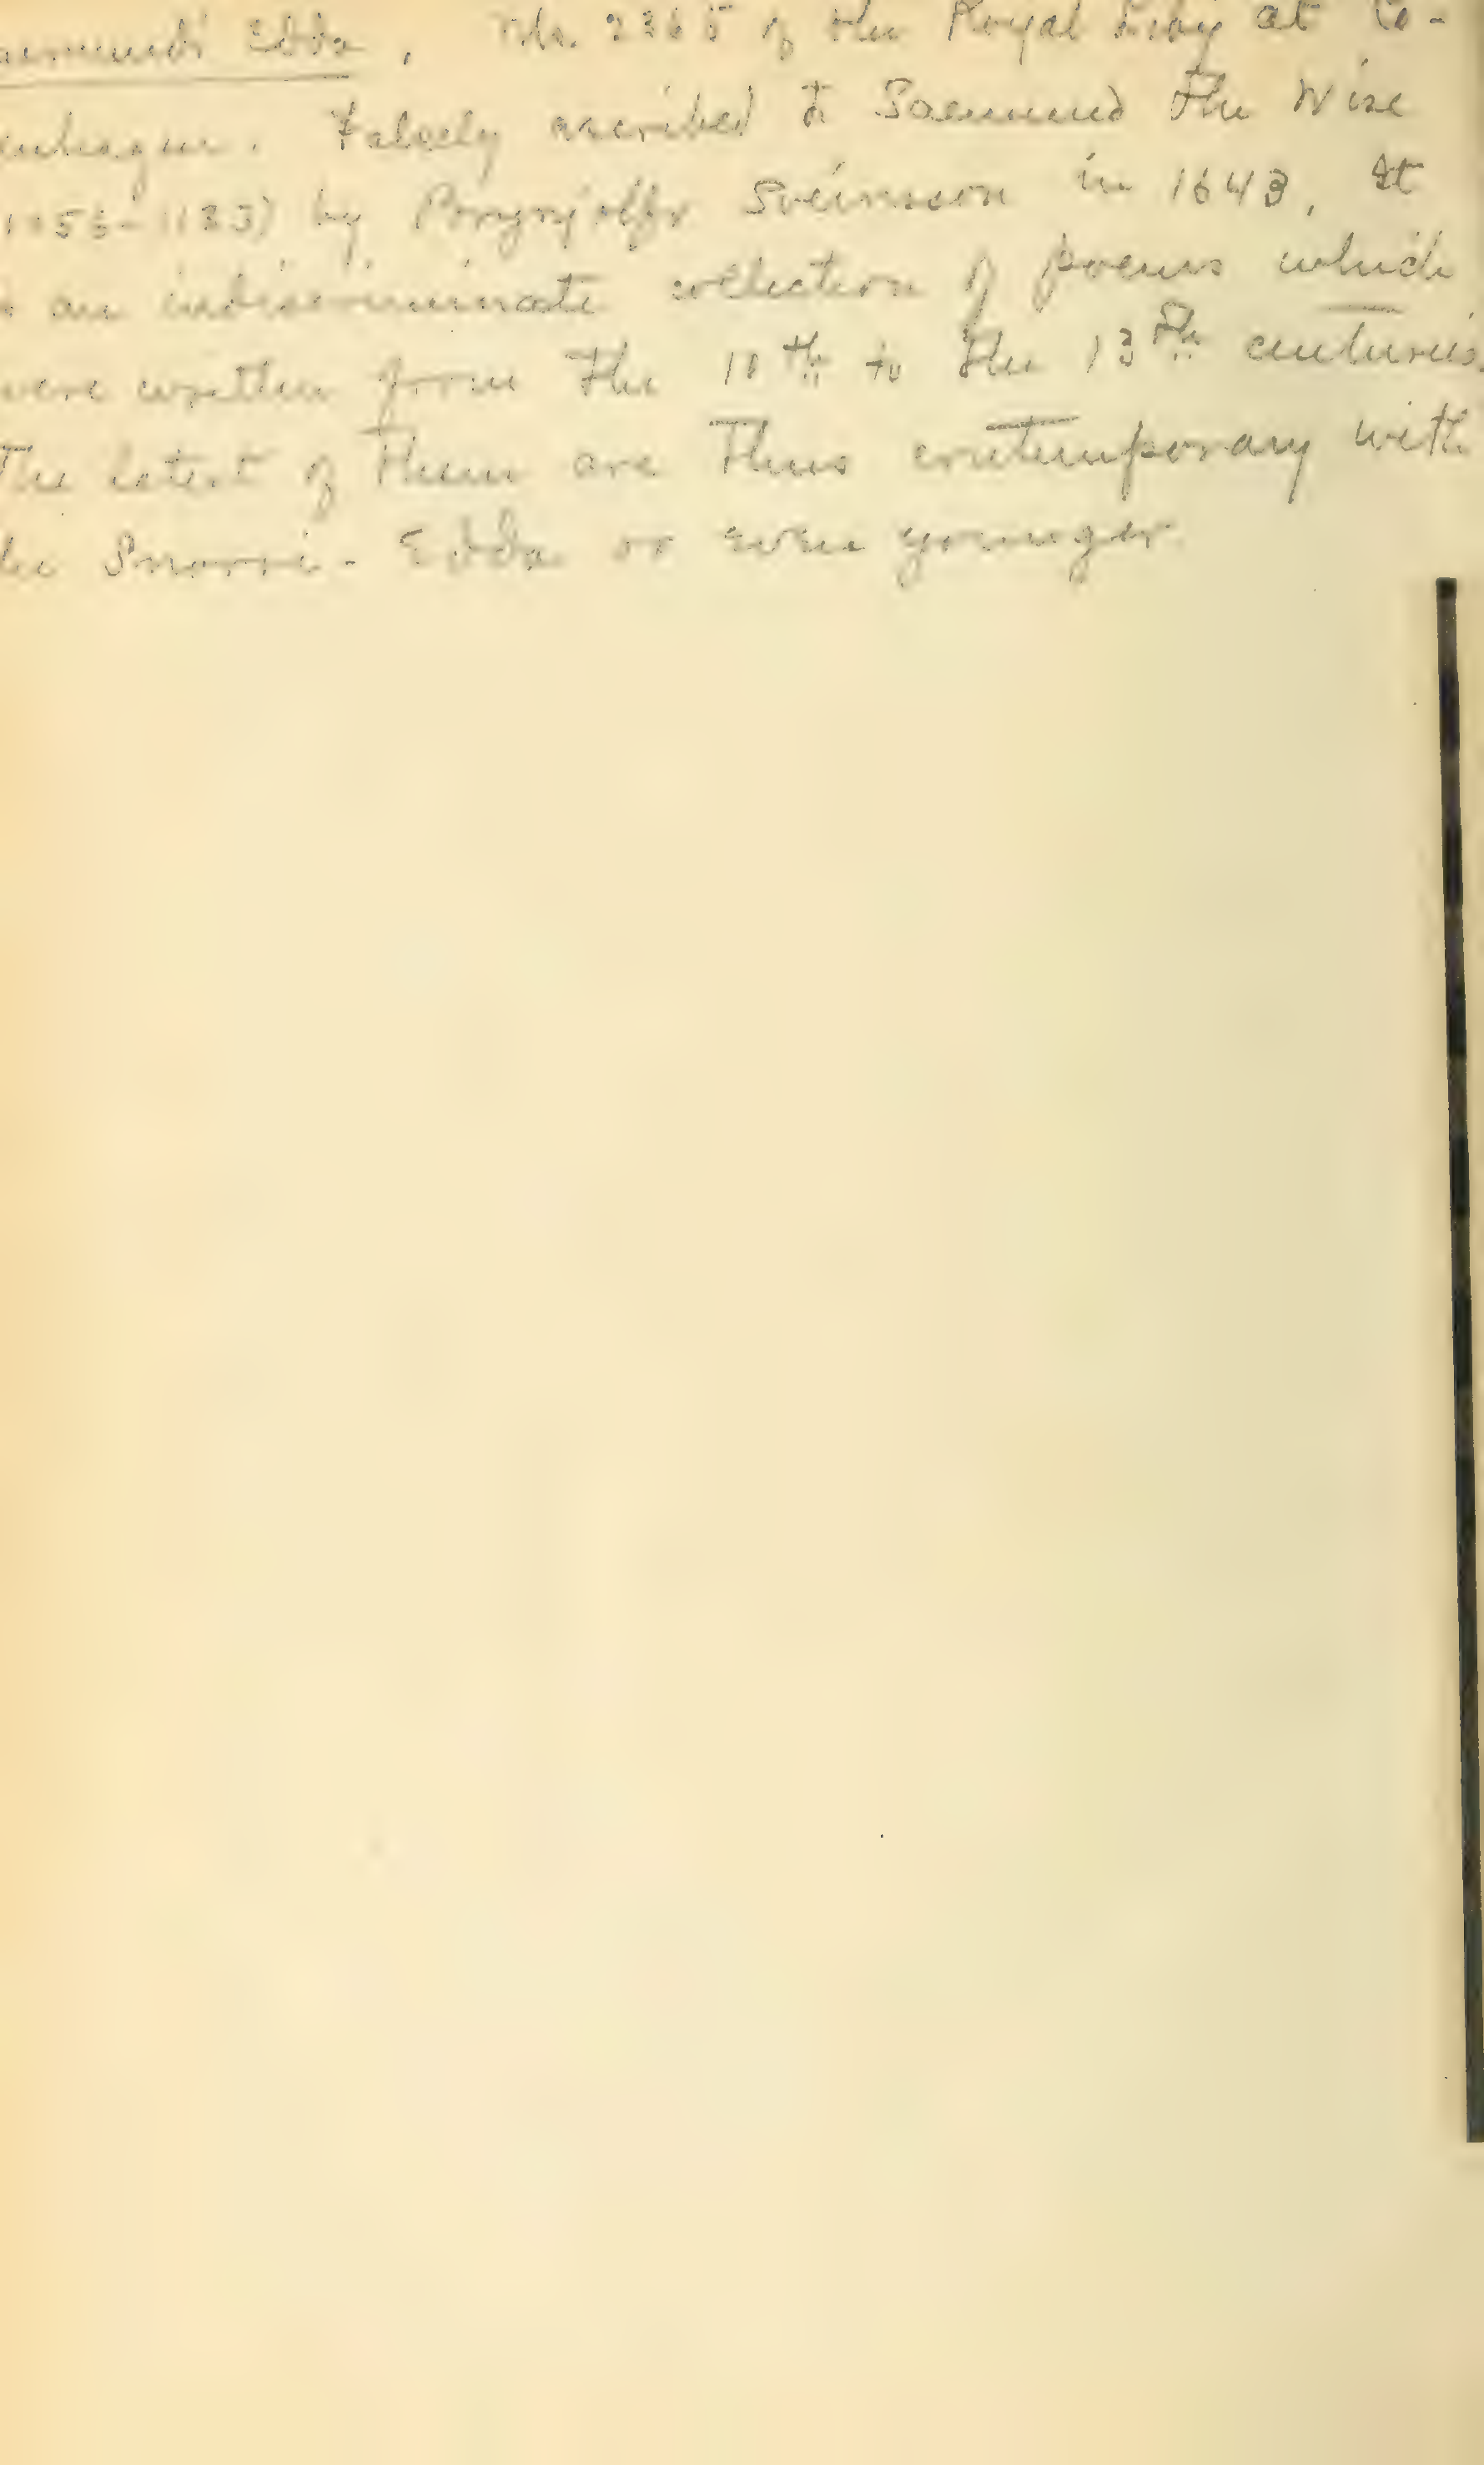 aemunds Edda, No. 2365 of the Royal Liby at Co-
enhagen. Falsely ascribed to Saemund the Wise
1055-1133) by Brynjolfr Sveinsson in 1643. It
s an indiscriminate collection of poems which
were written from the 10th to the 13th centuries.
The latest of them are thus contemporary with
he Snorri-Edda or even younger